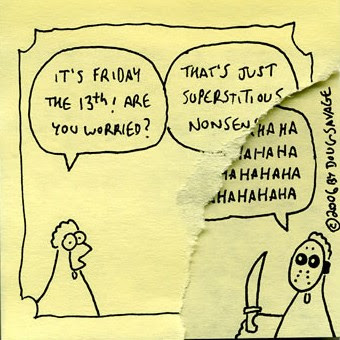 IT'S FRIDAY
THE 13th! ARE
YOU WORRIED?
THAT'S JUST
SUPERSTITIOUS
NONSENS
HA HA
AHAHAHA
HAHAHAHA
HAHAHAHA
©2006 BY DOUG SAVAGE